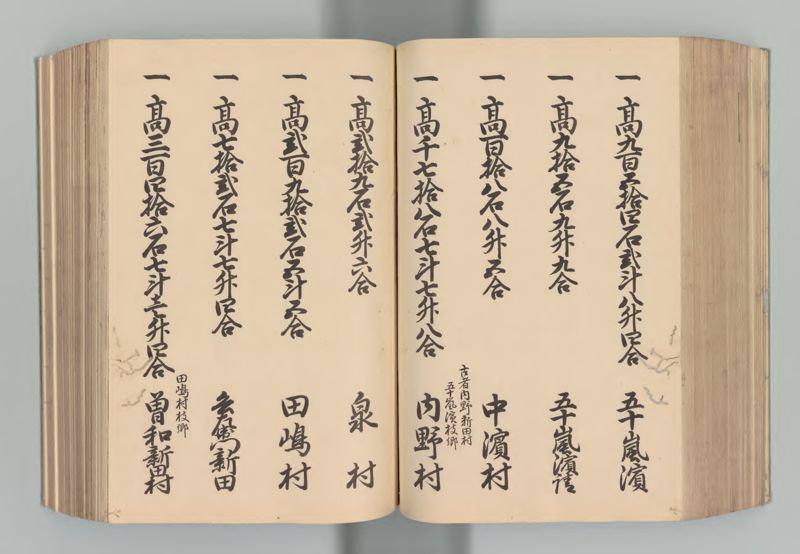 一 高九百五拾四石弐斗八升四合 五十嵐濱
一 高九拾五石九升九合 五十嵐濱請
一 高百拾八石八升五合 中濱村
古者内野新田村
五十嵐濱枝郷
一 高千七拾八石七斗七升八合 内野村
一 高弐拾九石弐升六合 泉村
一 高弐百九拾弐石五斗五合 田嶋村
一 高七拾弐石七斗七升四合 新田
田嶋村枝郷
一 高三百四拾六石七斗七升四合 曽和新田村